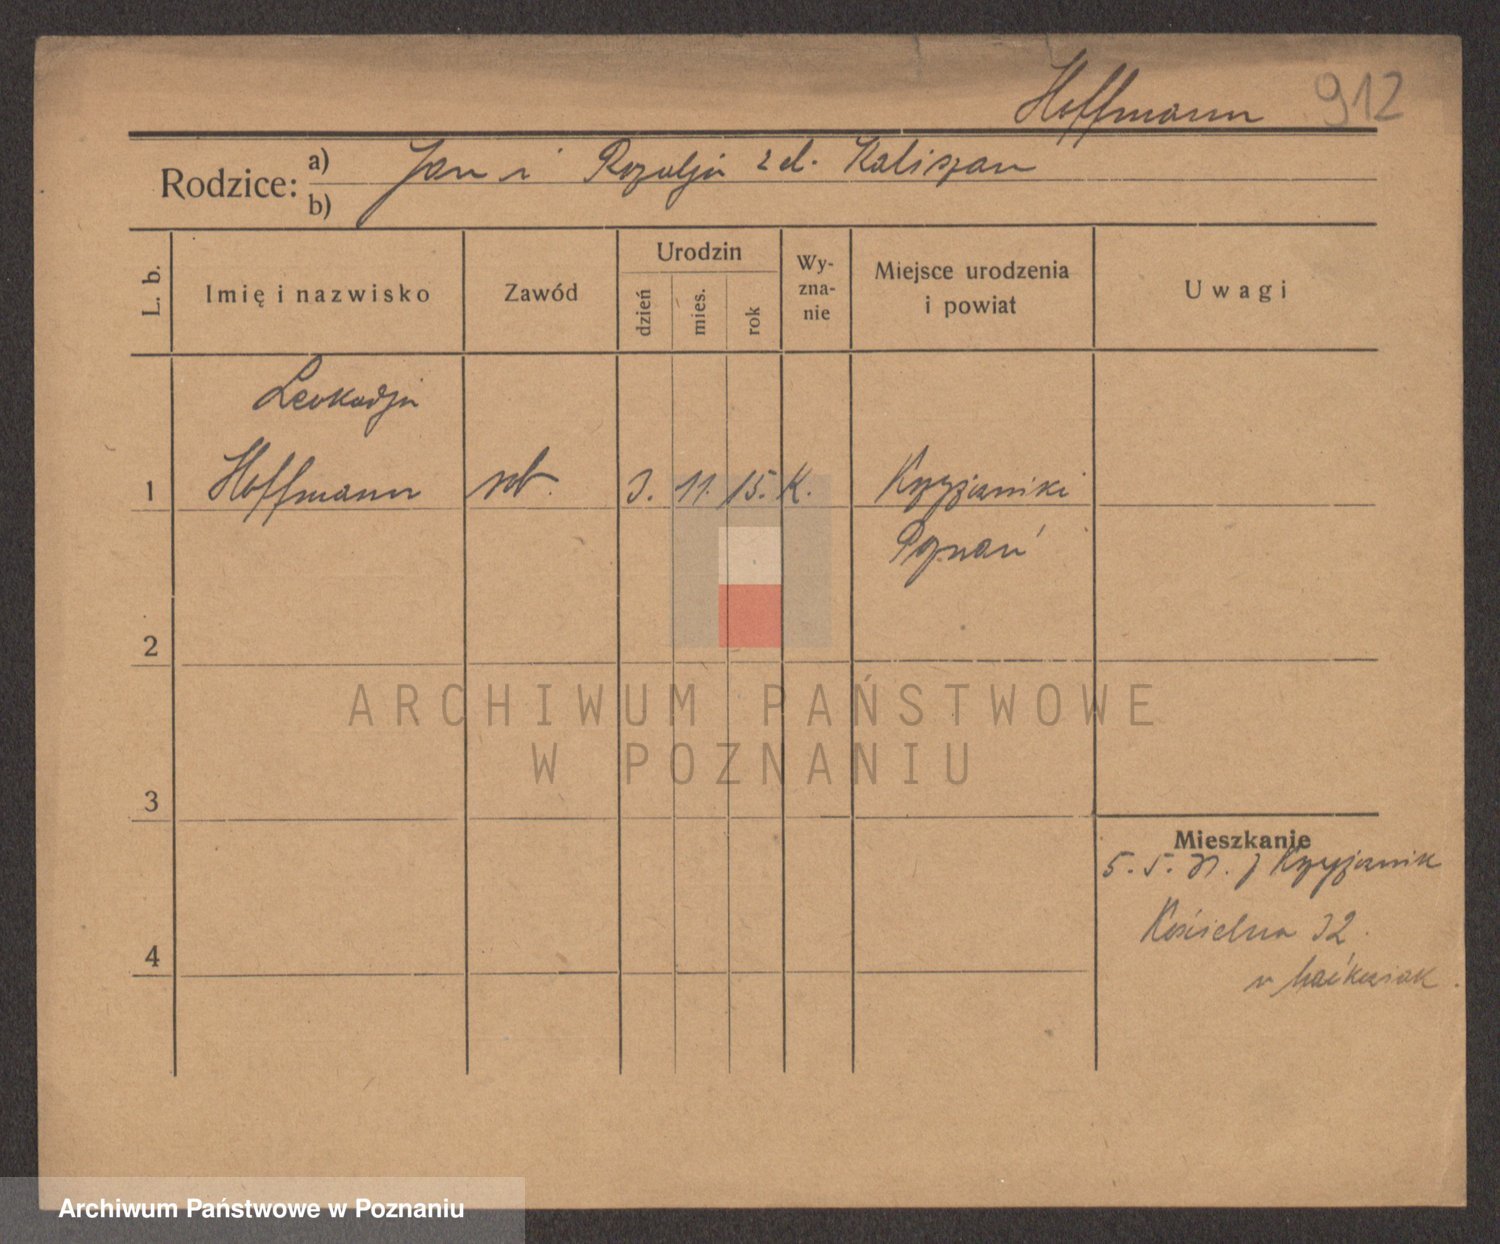 Hoffmann 912
Rodzice: a) Jan i Rozalja z d. Kaliszan
b)
L. b. Imię i nazwisko Zawód Urodzin dzień mies. rok Wyznanie Miejsce urodzenia i powiat Uwagi
Leokadja
1 Hoffmann rob. 3. 11. 15. K. Krzyżaniki
Poznań
2
3
4
ARCHIWUM PAŃSTWOWE
W POZNANIU
Mieszkanie
5. 5. 31. z Krzyżanik
Kościelna 32
Archiwum Państwowe w Poznaniu